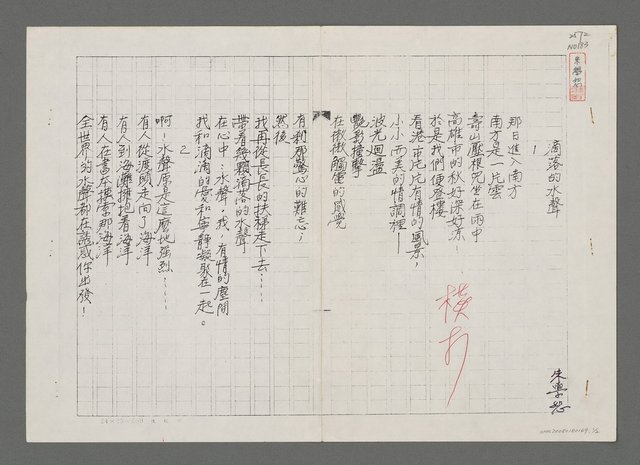 2572
滴落的水聲
1
那日進入南方
南方是一片雲
壽山壓根兒坐在雨中
高雄市的秋好深好涼！
於是我們便登樓
看港市沱沱有情的風景，
小小而美的情調裡！
波光迴盪
艷影撞擊
在微微觸電的感覺
有剎那驚心的難忘；
然後
我再從長長的扶梯走下去……
帶着無數顆滴落的水聲
在心中：水聲，我，有情的塵間
我和滴滴的愛和寧靜凝聚在一起。
2
啊！水聲原是這麼地強烈……
有人從渡頭走向了海洋
有人到海灘擁抱着海洋
有人在書本摸索那海洋
全世界的水聲都在誘惑你出發！
橫打
朱學恕